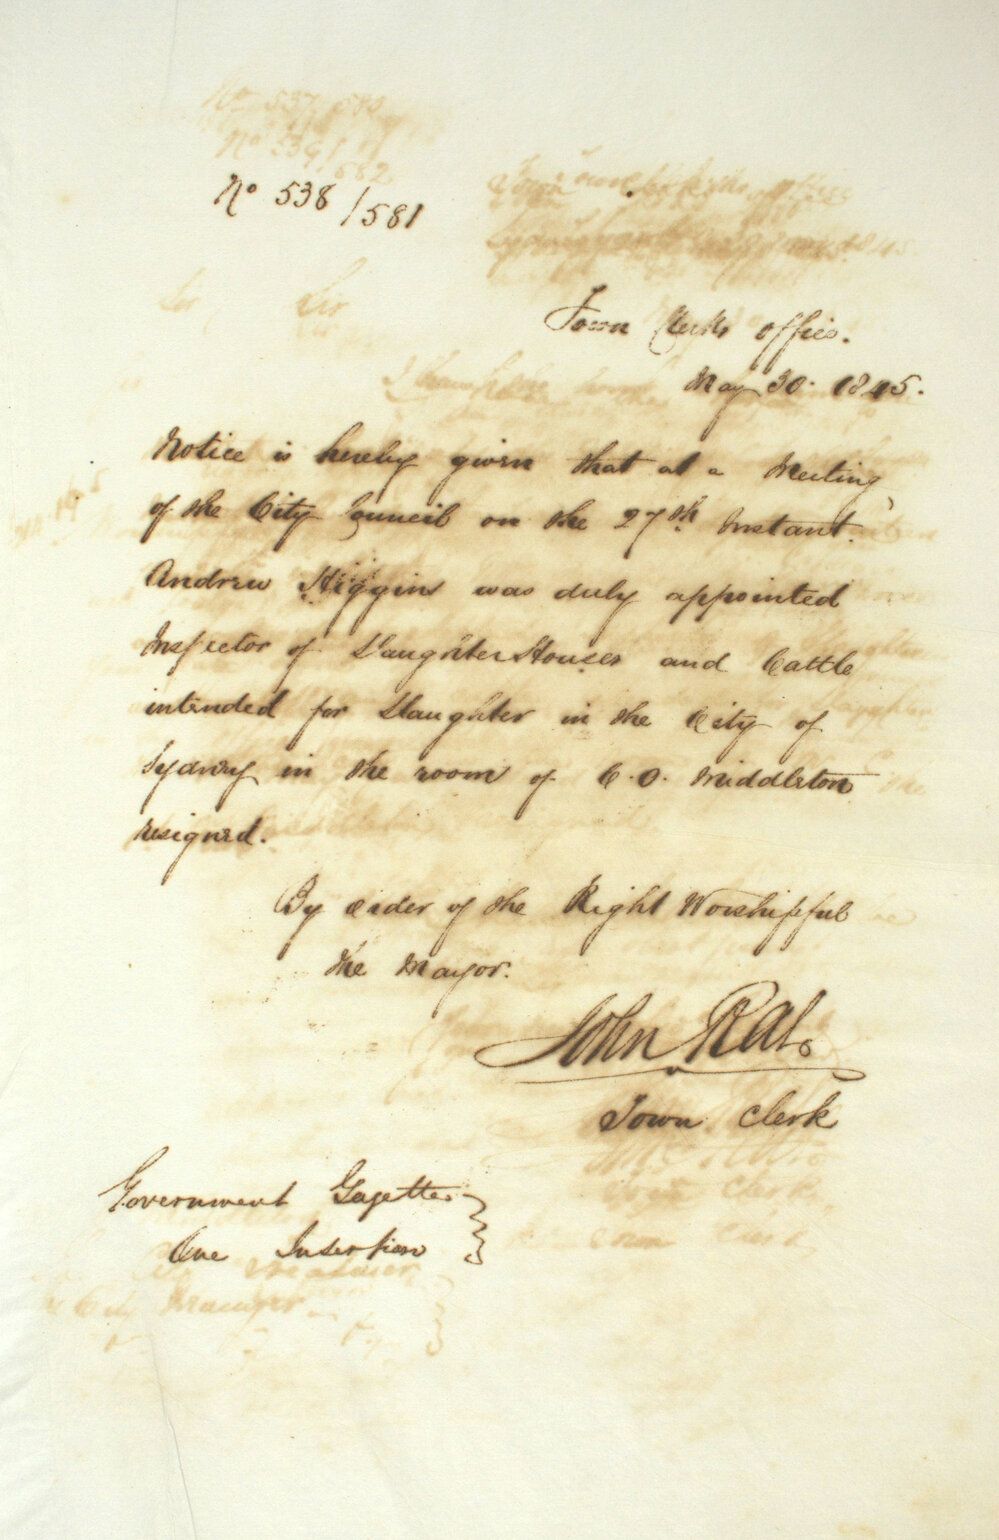 No 538/581
Town Clerks office.
May 30. 1845.
Notice is hereby given that at a Meeting
of the City Council on the 27th Instant.
Andrew Higgins was duly appointed
Inspector of Slaughter Houses and Cattle
intended for Slaughter in the City of
Sydney in the room of C. O. Middleton
resigned.
By order of the Right Worshipful
the Mayor.
John Rae
Town Clerk
Government Gazette
One Insertion